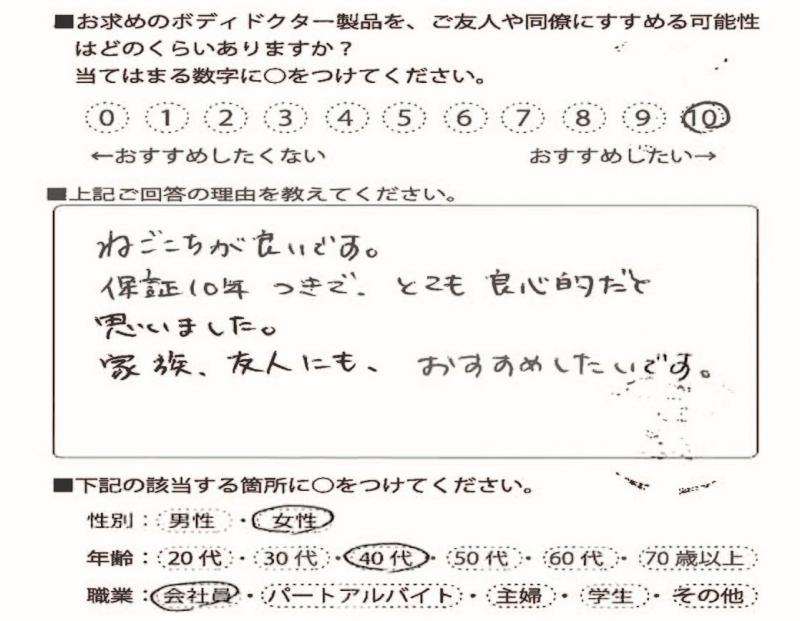 ■お求めのボディドクター製品を、ご友人や同僚にすすめる可能性
はどのくらいありますか？
当てはまる数字に○をつけてください。
0 1 2 3 4 5 6 7 8 9 10
←おすすめしたくない おすすめしたい→
■上記ご回答の理由を教えてください。
ねごこちが良いです。
保証10年つきで、とても良心的だと
思いました。
家族、友人にも、おすすめしたいです。
■下記の該当する箇所に○をつけてください。
性別：男性・女性
年齢：20代・30代・40代・50代・60代・70歳以上
職業：会社員・パートアルバイト・主婦・学生・その他